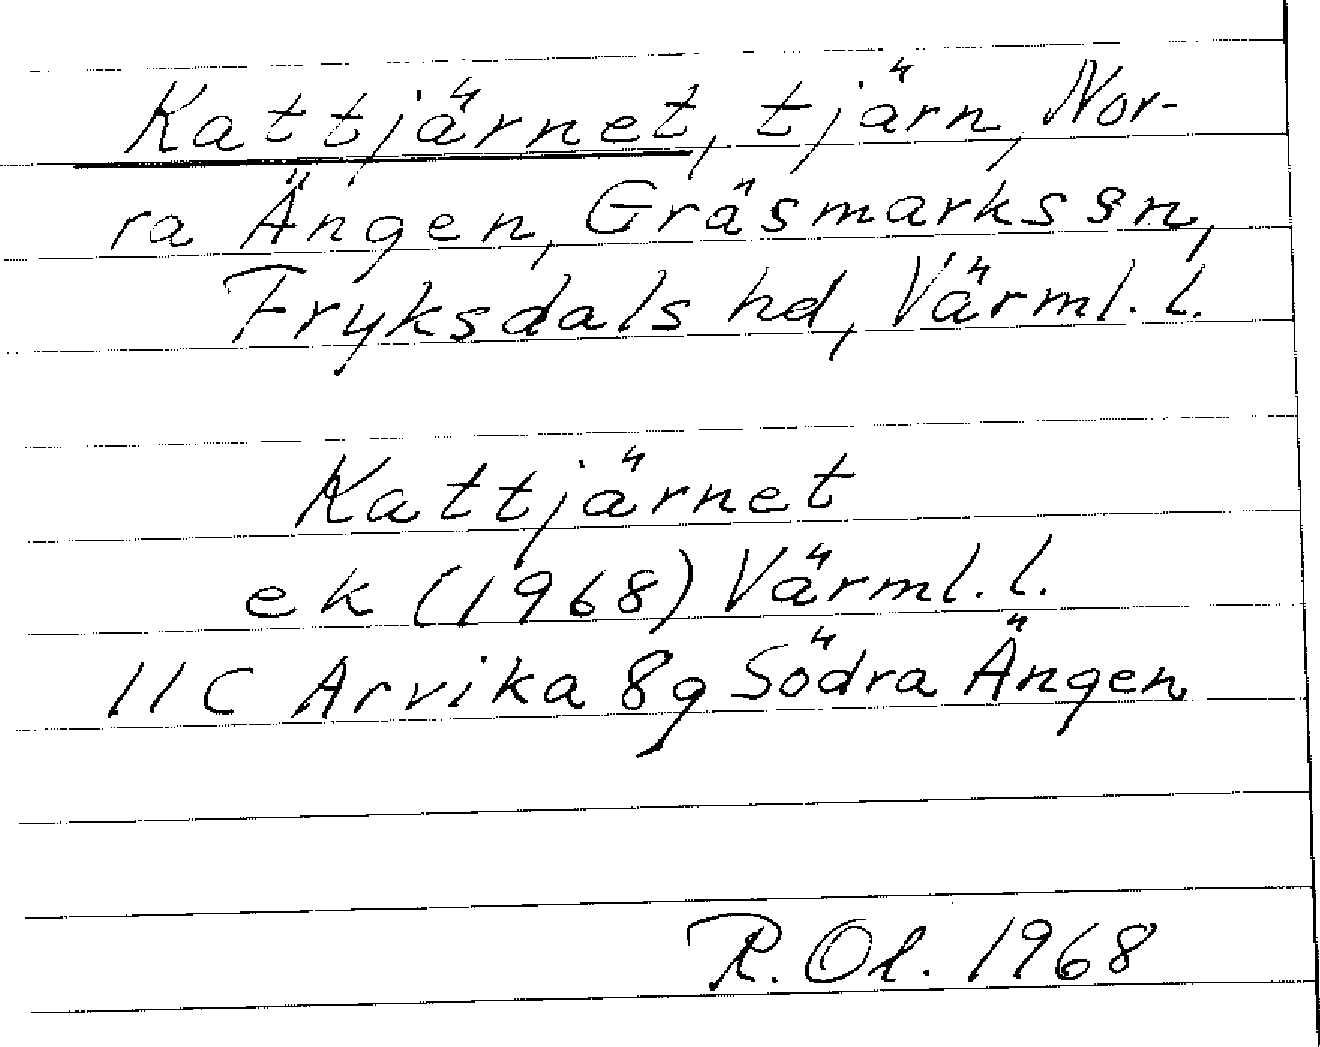 Kattjärnet, tjärn, Nor-
ra Ängen, Gräsmarks sn,
Fryksdals hd, Värml. l.
Kattjärnet
ek (1968) Värml. l.
11 C Arvika 8g Södra Ängen
R. Ol. 1968